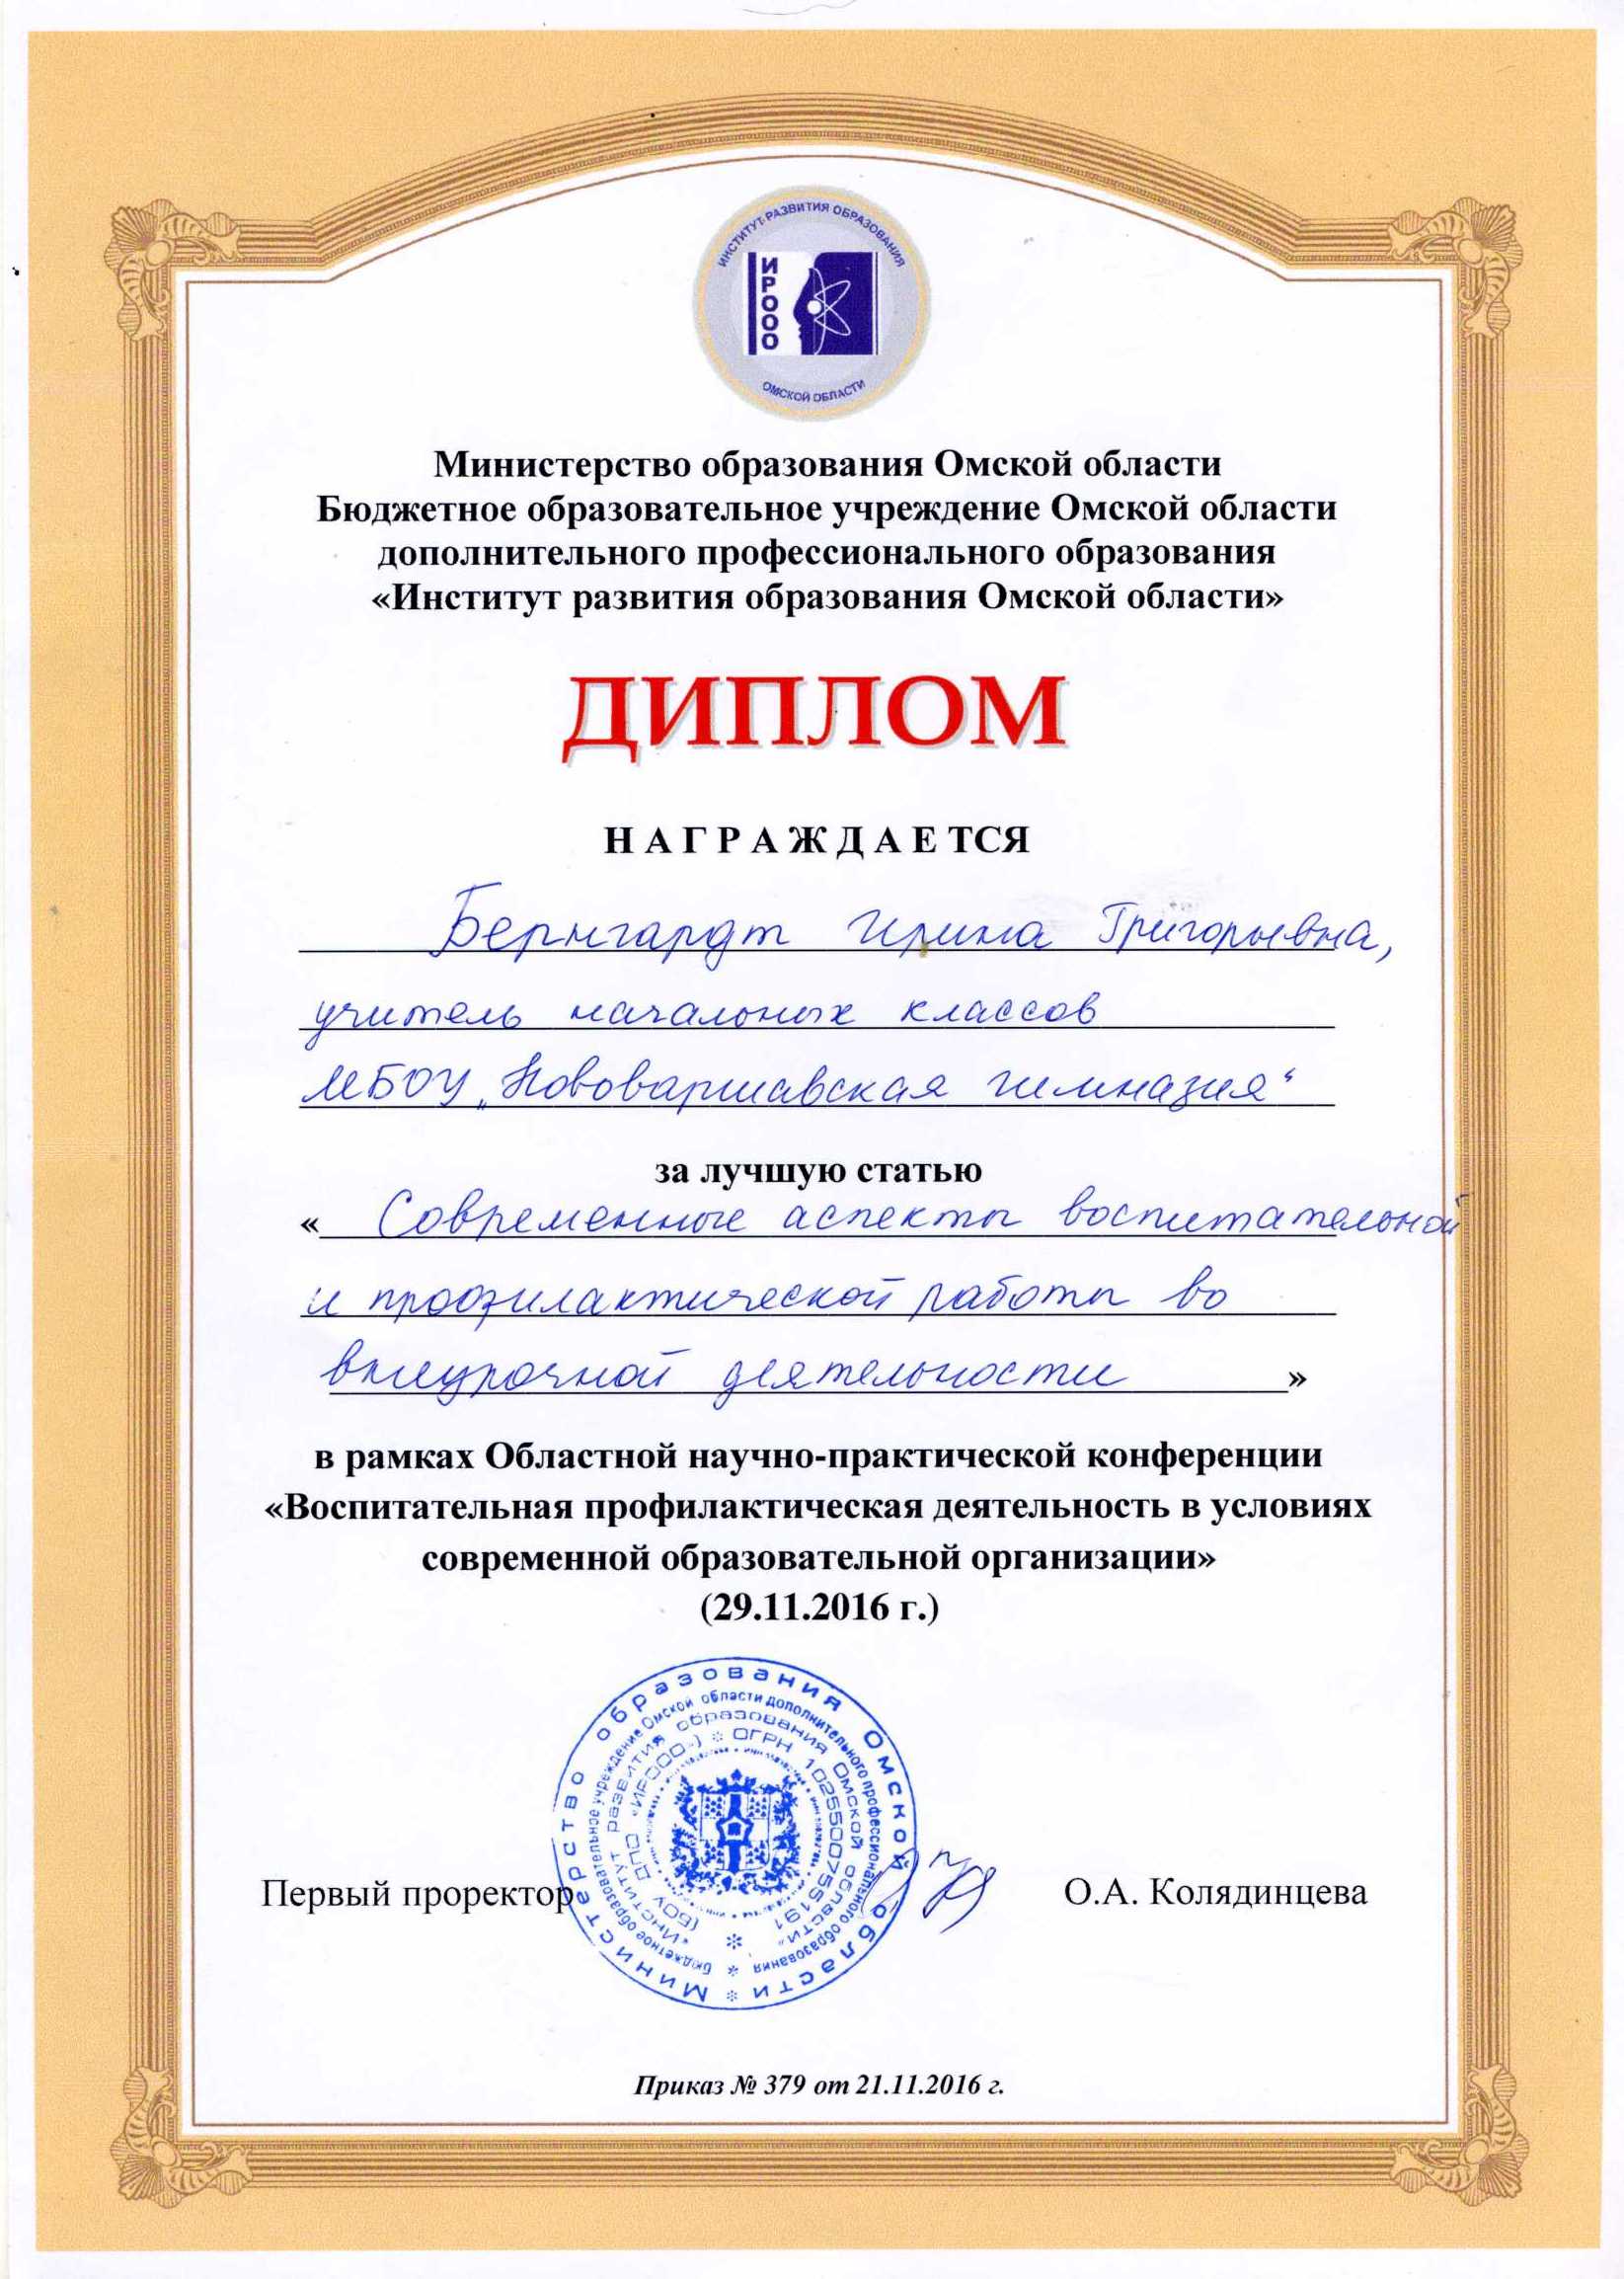 ИНСТИТУТ РАЗВИТИЯ ОБРАЗОВАНИЯ
ИРООО
ОМСКОЙ ОБЛАСТИ
Министерство образования Омской области
Бюджетное образовательное учреждение Омской области
дополнительного профессионального образования
«Институт развития образования Омской области»
ДИПЛОМ
НАГРАЖДАЕТСЯ
Бернгардт Ирина Григорьевна,
учитель начальных классов
МБОУ „Нововаршавская гимназия“
за лучшую статью
« Современные аспекты воспитательной
и профилактической работы во
внеурочной деятельности »
в рамках Областной научно-практической конференции
«Воспитательная профилактическая деятельность в условиях
современной образовательной организации»
(29.11.2016 г.)
Министерство образования Омской области *
бюджетное образовательное учреждение Омской области дополнительного профессионального образования *
«Институт развития образования Омской области»
(БОУ ДПО «ИРООО») * ОГРН 1025500755191
Первый проректор
О.А. Колядинцева
Приказ № 379 от 21.11.2016 г.